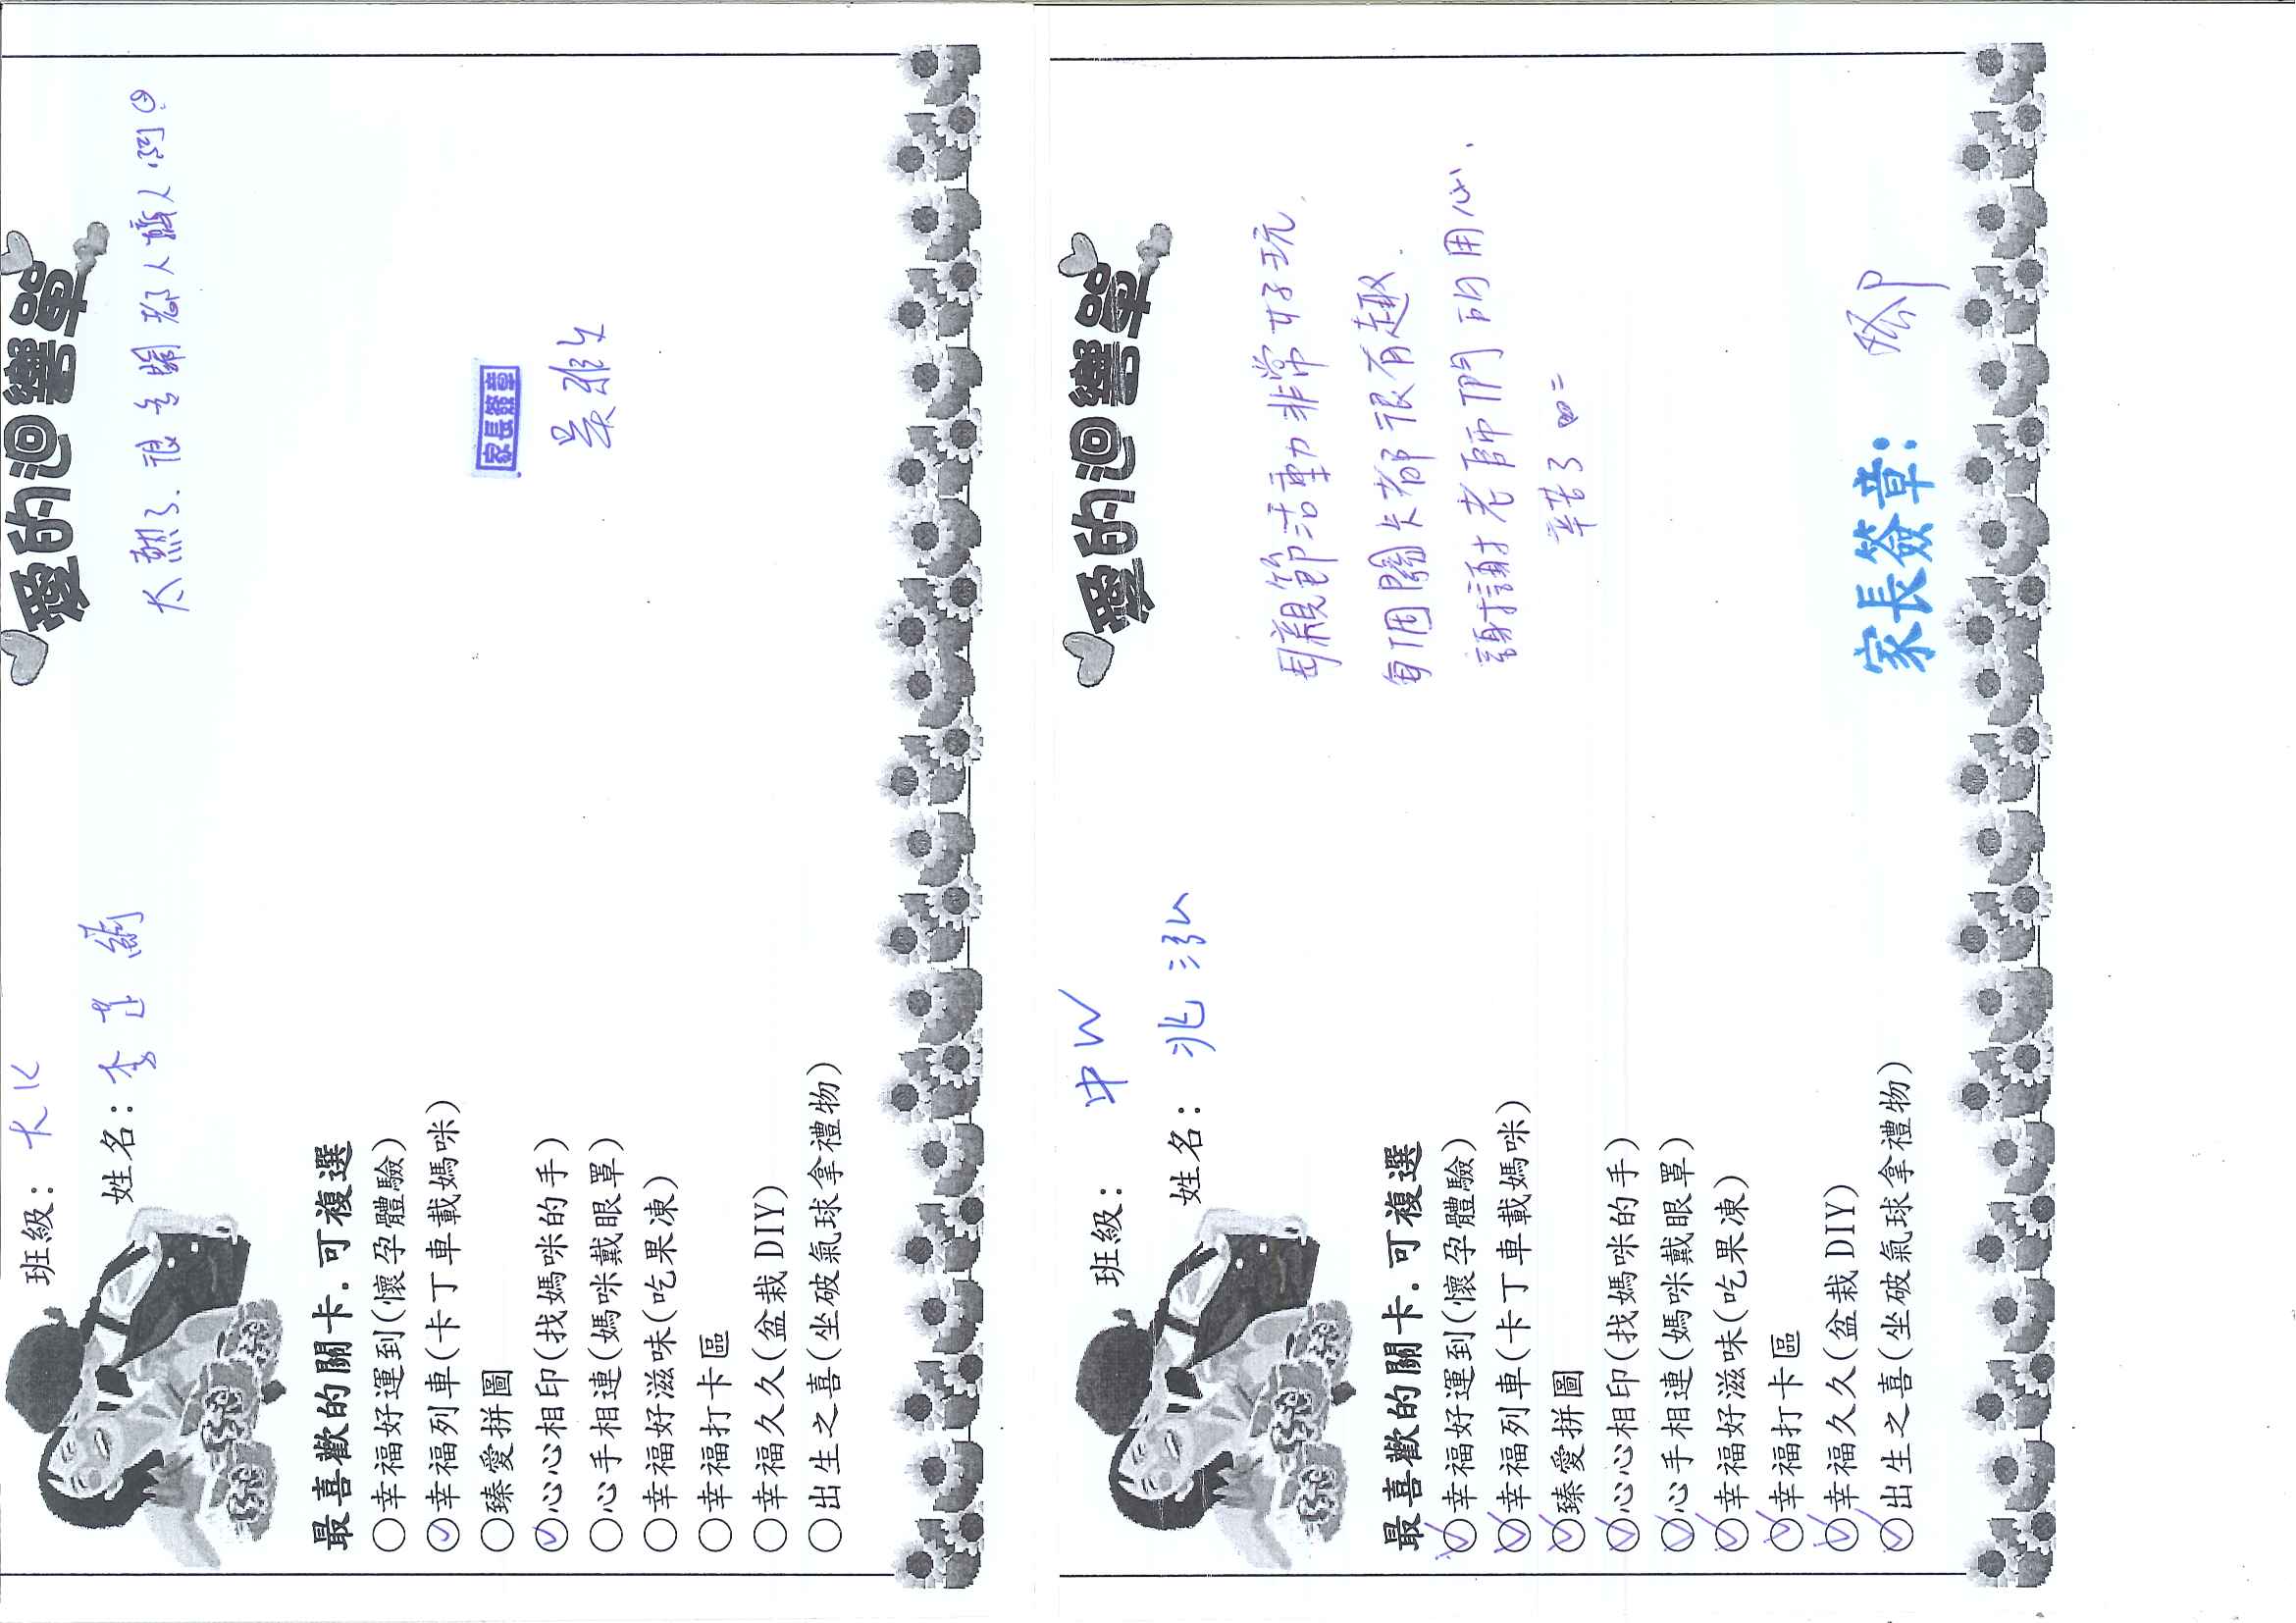 愛的迴響單
班級：
姓名：李
太熱了.很多關卡
最喜歡的關卡.可複選
幸福好運到(懷孕體驗)
幸福列車(卡丁車載媽咪)
臻愛拼圖
心心相印(找媽咪的手)
心手相連(媽咪戴眼罩)
幸福好滋味(吃果凍)
幸福打卡區
幸福久久(盆栽DIY)
出生之喜(坐破氣球拿禮物)
家長簽章
愛的迴響單
班級：中W
姓名：兆泓
母親節活動非常好玩.
每個關卡都很有趣.
謝謝老師們的用心.
辛苦了
最喜歡的關卡.可複選
幸福好運到(懷孕體驗)
幸福列車(卡丁車載媽咪)
臻愛拼圖
心心相印(找媽咪的手)
心手相連(媽咪戴眼罩)
幸福好滋味(吃果凍)
幸福打卡區
幸福久久(盆栽DIY)
出生之喜(坐破氣球拿禮物)
家長簽章：